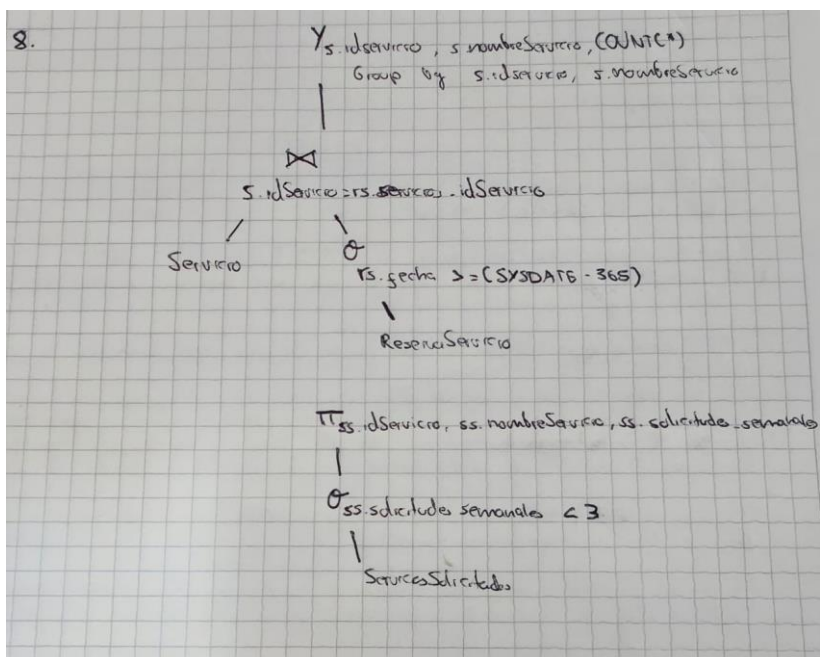 8.
γ s.idservicio, s nombreServicio, COUNT(*)
Group by s.idservicio, s.nombreServicio
⋈
s.idServicio = rs.servicios_idServicio
Servicio
σ
rs.fecha >= (SYSDATE - 365)
ReservaServicio
π ss.idServicio, ss.nombreServicio, ss.solicitudes_semanales
σ ss.solicitudes semanales < 3
ServiciosSolicitados